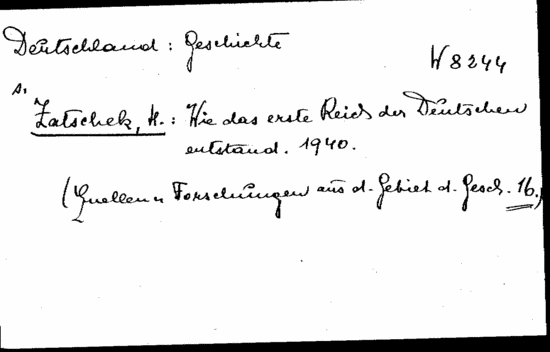 Deutschland: Geschichte
W 8244
s.
Zatschek, H.: Wie das erste Reich der Deutschen
entstand. 1940.
(Quellen u Forschungen aus d. Gebiet d. Gesch. 16.)